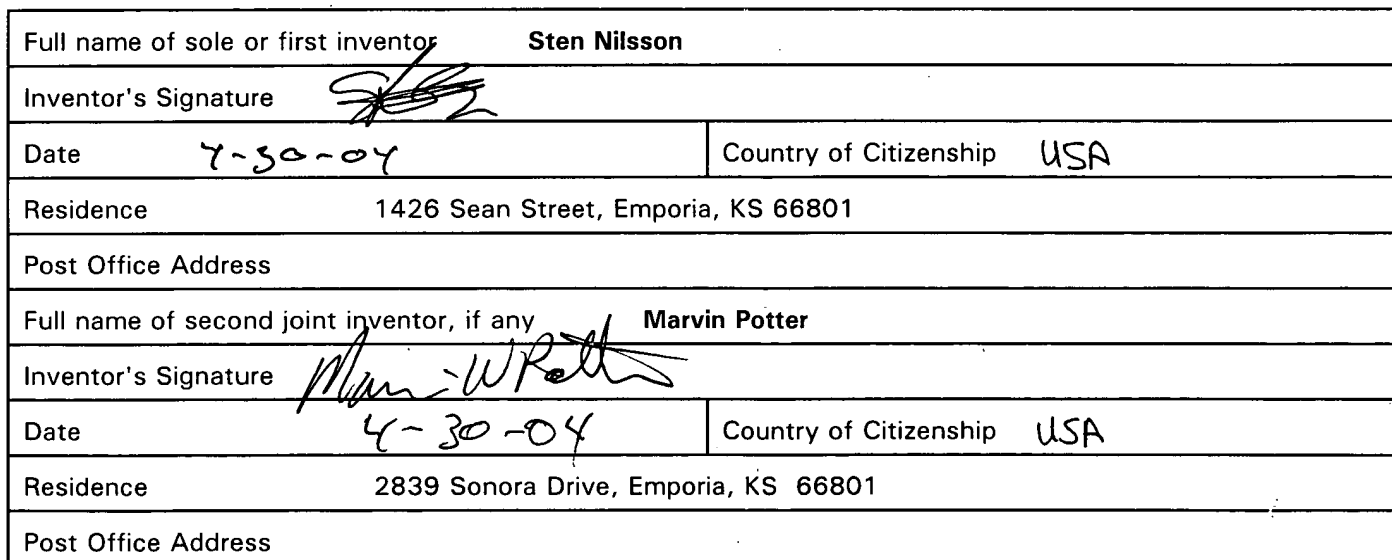 Full name of sole or first inventor Sten Nilsson
Inventor's Signature
Date 4-30-04 Country of Citizenship USA
Residence 1426 Sean Street, Emporia, KS 66801
Post Office Address
Full name of second joint inventor, if any Marvin Potter
Inventor's Signature Marvin W Potter
Date 4-30-04 Country of Citizenship USA
Residence 2839 Sonora Drive, Emporia, KS 66801
Post Office Address